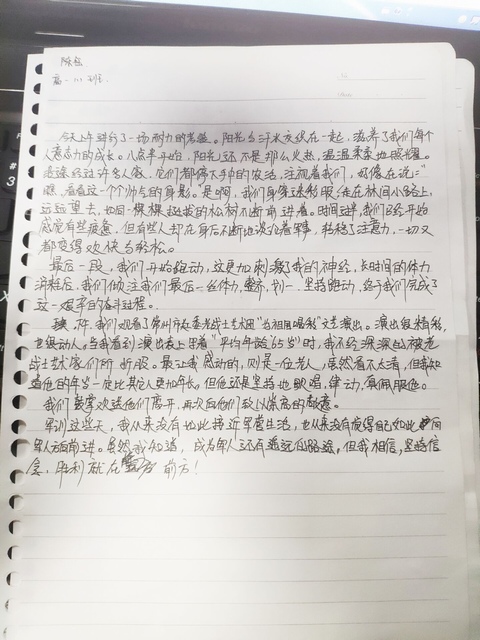 高一
今天上午进行了一场耐力的考验。阳光与汗水交织在一起，滋养了我们每个
人意志力的成长。八点半开始，阳光还不是那么火热，温温柔柔地照耀。
途经许多人家，它们都停下手中的农活，注视着我们，好像在说："
瞧，看看这一个个帅气的身影。"是啊，我们身穿迷彩服，走在林间小路上，
远远望去，如同一棵棵挺拔的松树不断前进着。时间过半，我们已经开始
感觉有些疲惫，但有些人却在身后不断地谈论着军事，转移了注意力，一切又
都变得欢快与轻松。
最后一段，我们开始跑动，这更加刺激了我的神经，长时间的体力
消耗后，我们倾注我们最后一丝体力，整齐划一，坚持跑动，终于我们完成了
这一艰辛的奋斗过程。
下午，我们观看了常州市红委老战士艺术团"当祖国唱彩"文艺演出。演出很精彩，
也很动人。当我看到演出表上写着"平均年龄65岁"时，我不经深深的被老
战士艺术家们所折服。最让我感动的，则是一位老人，居然看不太清，但我知
道他的年岁一定比其它人更加年长，但他还是坚持地歌唱，律动，真佩服他。
我们鼓掌欢送他们离开，再次向他们致以崇高的敬意。
军训这些天，我从来没有如此接近军营生活，也从来没有觉得自己如此向
军人方向前进。虽然我知道，成为军人还有遥远的路途，但我相信，坚持信
念，胜利就在前方！